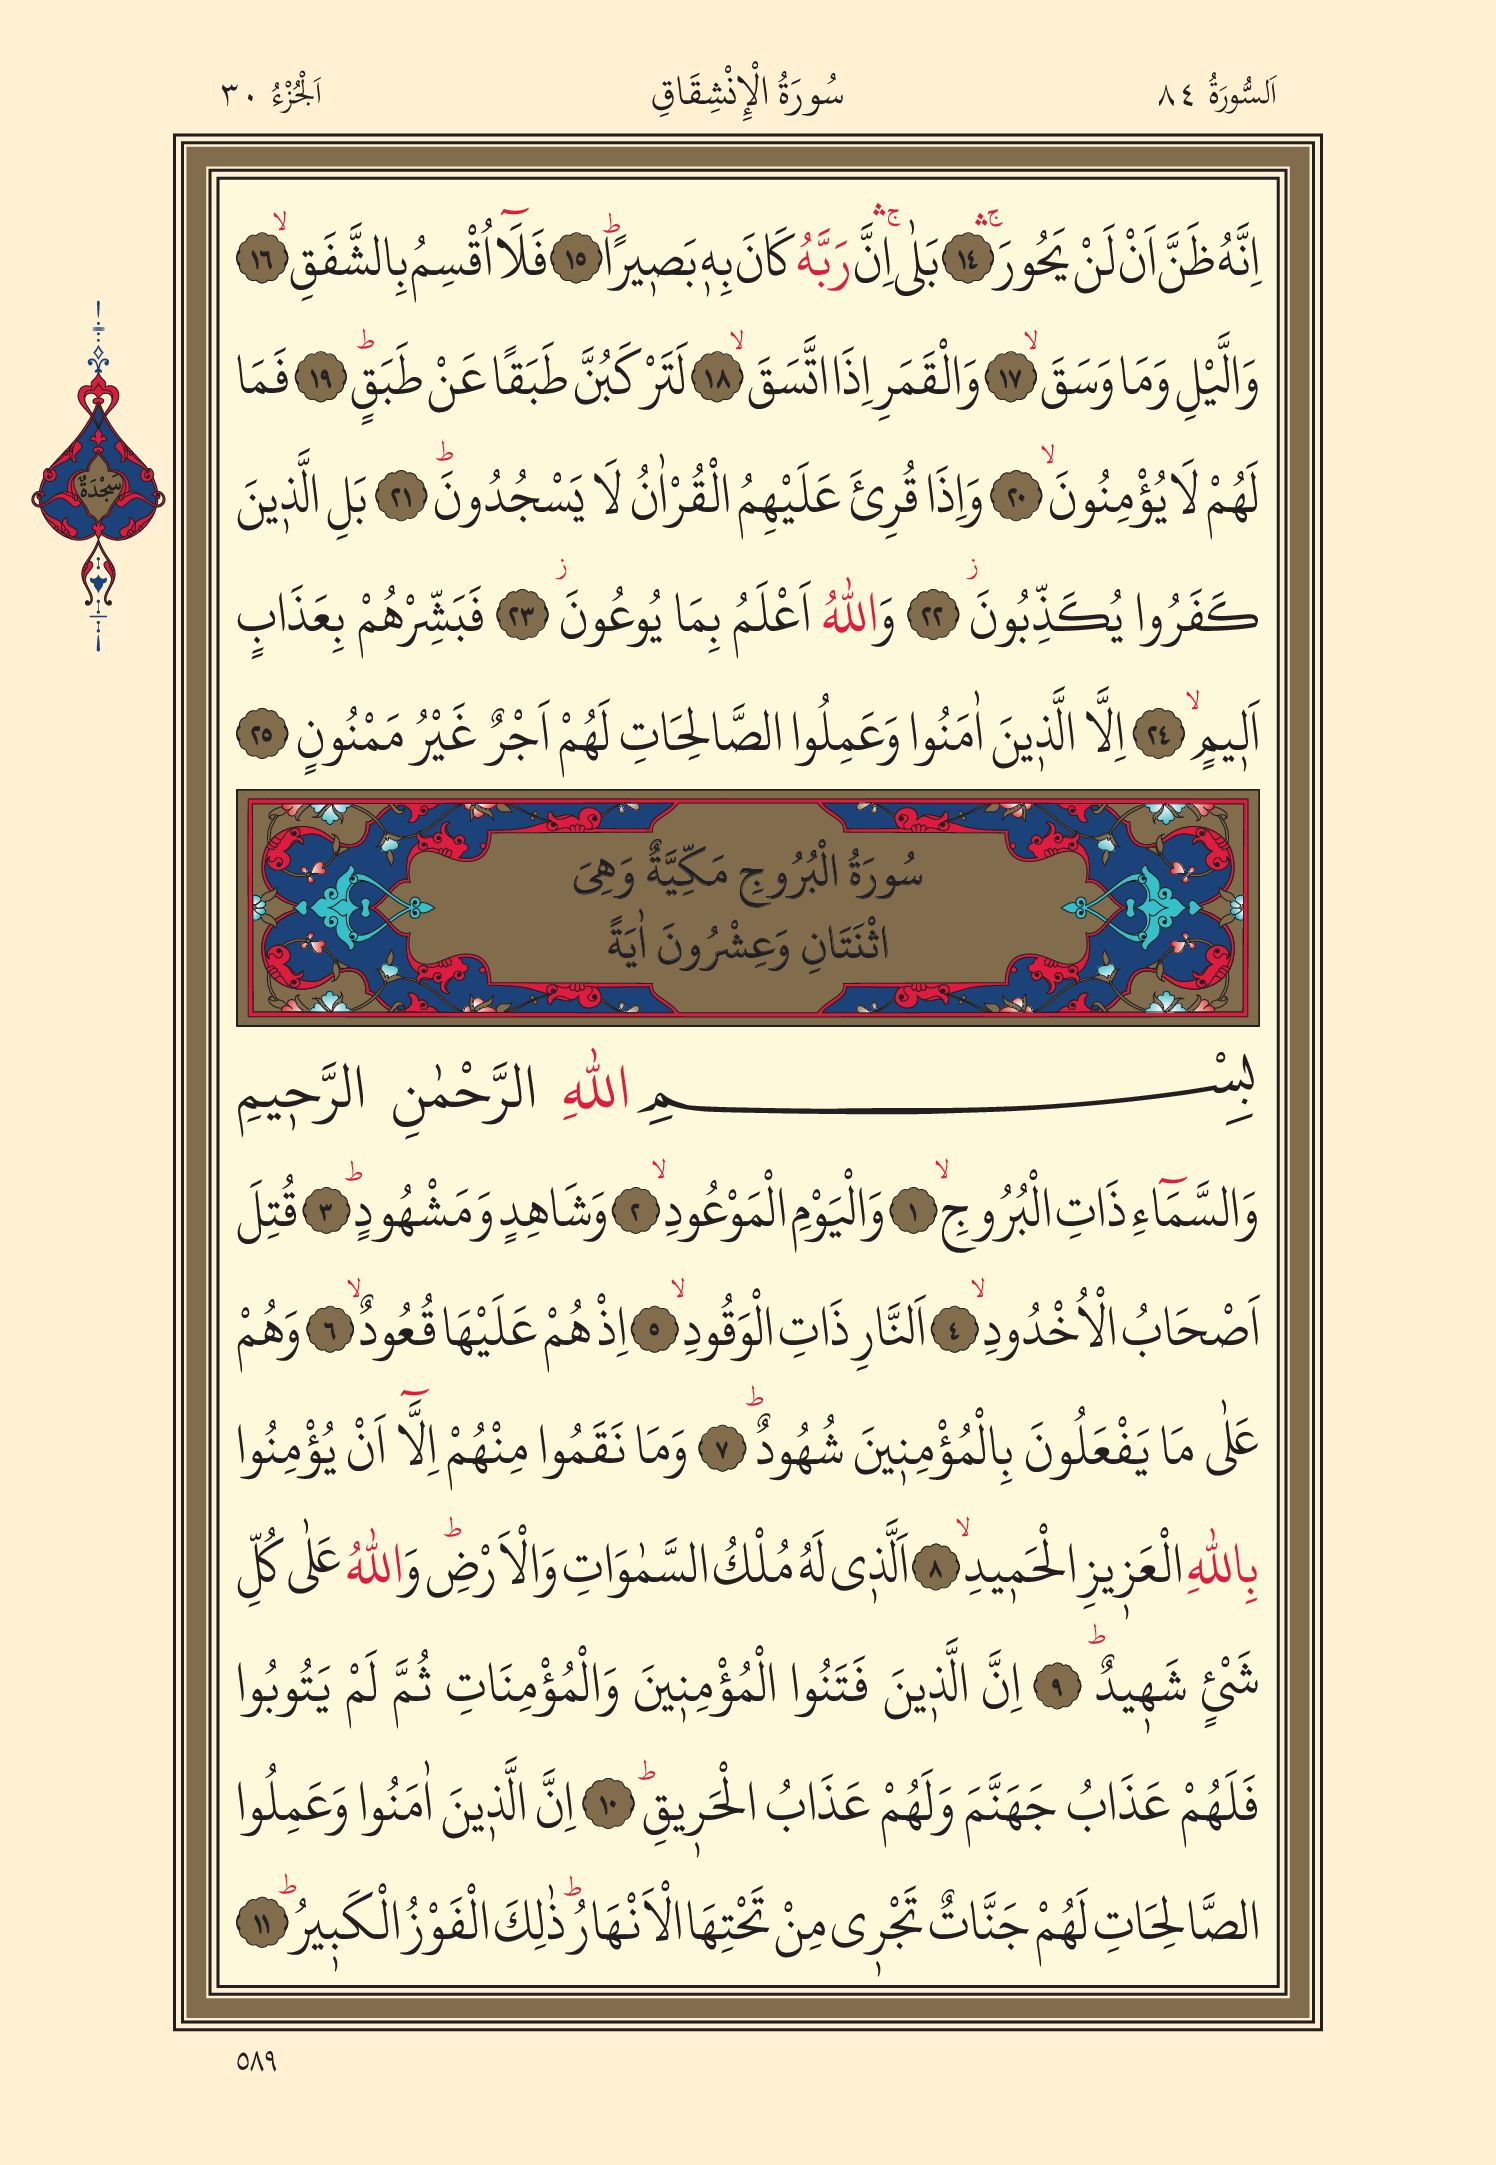 اَلسُّورَةُ ٨٤ سُورَةُ الْاِنْشِقَاقِ اَلْجُزْءُ ٣٠
اِنَّهُ ظَنَّ اَنْ لَنْ يَحُورَۚۛ ﴿١٤﴾ بَلٰىۚۛ اِنَّ رَبَّهُ كَانَ بِه۪ بَص۪يرًاۜ ﴿١٥﴾ فَلَٓا اُقْسِمُ بِالشَّفَقِۙ ﴿١٦﴾
وَالَّيْلِ وَمَا وَسَقَۙ ﴿١٧﴾ وَالْقَمَرِ اِذَا اتَّسَقَۙ ﴿١٨﴾ لَتَرْكَبُنَّ طَبَقًا عَنْ طَبَقٍۜ ﴿١٩﴾ فَمَا
لَهُمْ لَا يُؤْمِنُونَۙ ﴿٢٠﴾ وَاِذَا قُرِئَ عَلَيْهِمُ الْقُرْاٰنُ لَا يَسْجُدُونَۜ ﴿٢١﴾ بَلِ الَّذ۪ينَ
سَجْدَةٌ
كَفَرُوا يُكَذِّبُونَۘ ﴿٢٢﴾ وَاللّٰهُ اَعْلَمُ بِمَا يُوعُونَۘ ﴿٢٣﴾ فَبَشِّرْهُمْ بِعَذَابٍ
اَل۪يمٍۙ ﴿٢٤﴾ اِلَّا الَّذ۪ينَ اٰمَنُوا وَعَمِلُوا الصَّالِحَاتِ لَهُمْ اَجْرٌ غَيْرُ مَمْنُونٍ ﴿٢٥﴾
سُورَةُ الْبُرُوجِ مَكِّيَّةٌ وَهِىَ
اثْنَتَانِ وَعِشْرُونَ اٰيَةً
بِسْمِ اللّٰهِ الرَّحْمٰنِ الرَّح۪يمِ
وَالسَّمَٓاءِ ذَاتِ الْبُرُوجِۙ ﴿١﴾ وَالْيَوْمِ الْمَوْعُودِۙ ﴿٢﴾ وَشَاهِدٍ وَمَشْهُودٍۜ ﴿٣﴾ قُتِلَ
اَصْحَابُ الْاُخْدُودِۙ ﴿٤﴾ اَلنَّارِ ذَاتِ الْوَقُودِۙ ﴿٥﴾ اِذْ هُمْ عَلَيْهَا قُعُودٌۙ ﴿٦﴾ وَهُمْ
عَلٰى مَا يَفْعَلُونَ بِالْمُؤْمِن۪ينَ شُهُودٌۜ ﴿٧﴾ وَمَا نَقَمُوا مِنْهُمْ اِلَّٓا اَنْ يُؤْمِنُوا
بِاللّٰهِ الْعَز۪يزِ الْحَم۪يدِۙ ﴿٨﴾ اَلَّذ۪ى لَهُ مُلْكُ السَّمٰوَاتِ وَالْاَرْضِۜ وَاللّٰهُ عَلٰى كُلِّ
شَىْءٍ شَه۪يدٌۜ ﴿٩﴾ اِنَّ الَّذ۪ينَ فَتَنُوا الْمُؤْمِن۪ينَ وَالْمُؤْمِنَاتِ ثُمَّ لَمْ يَتُوبُوا
فَلَهُمْ عَذَابُ جَهَنَّمَ وَلَهُمْ عَذَابُ الْحَر۪يقِۜ ﴿١٠﴾ اِنَّ الَّذ۪ينَ اٰمَنُوا وَعَمِلُوا
الصَّالِحَاتِ لَهُمْ جَنَّاتٌ تَجْر۪ى مِنْ تَحْتِهَا الْاَنْهَارُۜ ذٰلِكَ الْفَوْزُ الْكَب۪يرُۜ ﴿١١﴾
٥٨٩